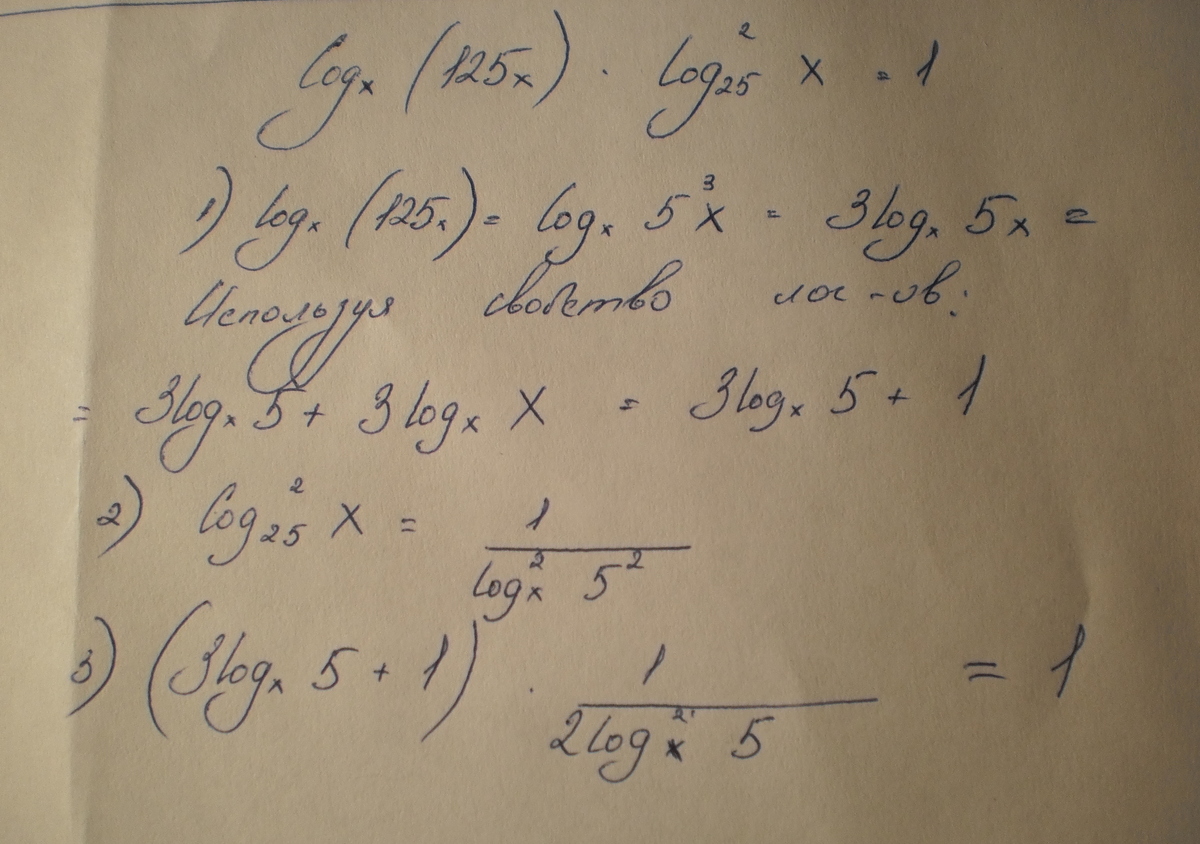 logₓ (125x) · log²₂₅ x = 1
1) logₓ (125x) = logₓ 5³x = 3logₓ 5x =
Используя свойство лог-ов:
= 3logₓ 5 + 3logₓ x = 3logₓ 5 + 1
2) log²₂₅ x = 1 / log²ₓ 5²
3) (3logₓ 5 + 1) · 1 / 2log²ₓ 5 = 1